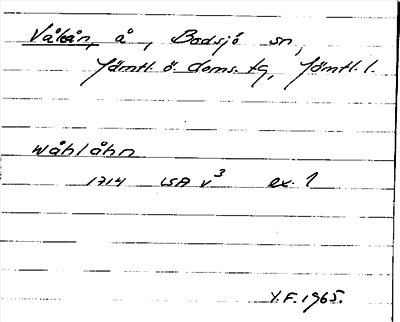 Vålån, å, Bodsjö sn,
Jämtl. ö. doms. tg, Jämtl. l.
wåhlåhn
1714 LSA v³ ex. 1
Y.F. 1965.